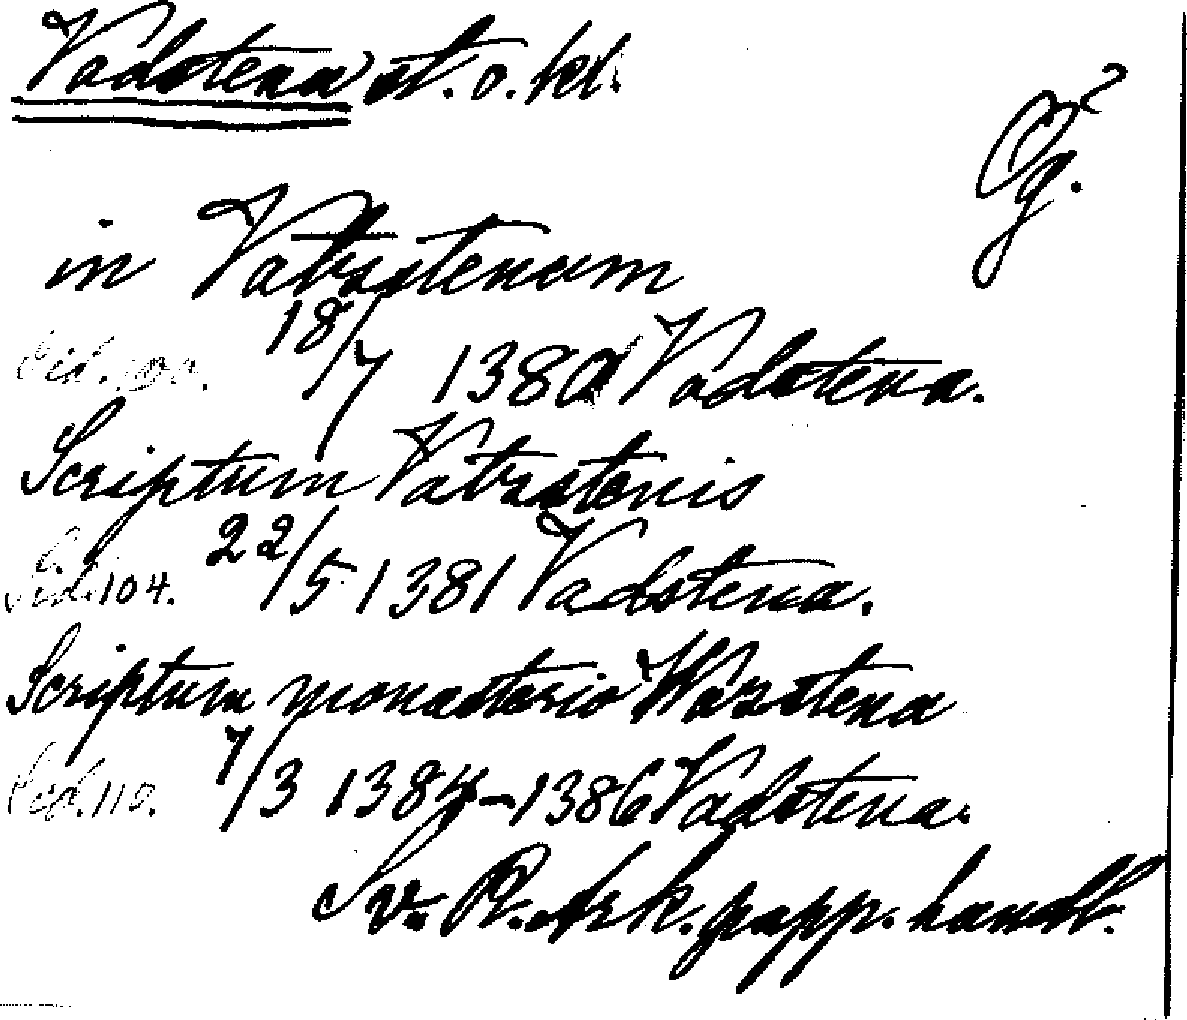 Vadstena st. o. kl.
Ög.
in Vatzstenam
18/7 1380 Vadstena.
Scriptum Vatzstenis
Sid. 104. 22/5 1381 Vadstena.
Scriptum monasterio Wazstena
Sid. 110. 7/3 1384-1386 Vadstena.
Sv. R. Ark. papp. handl.